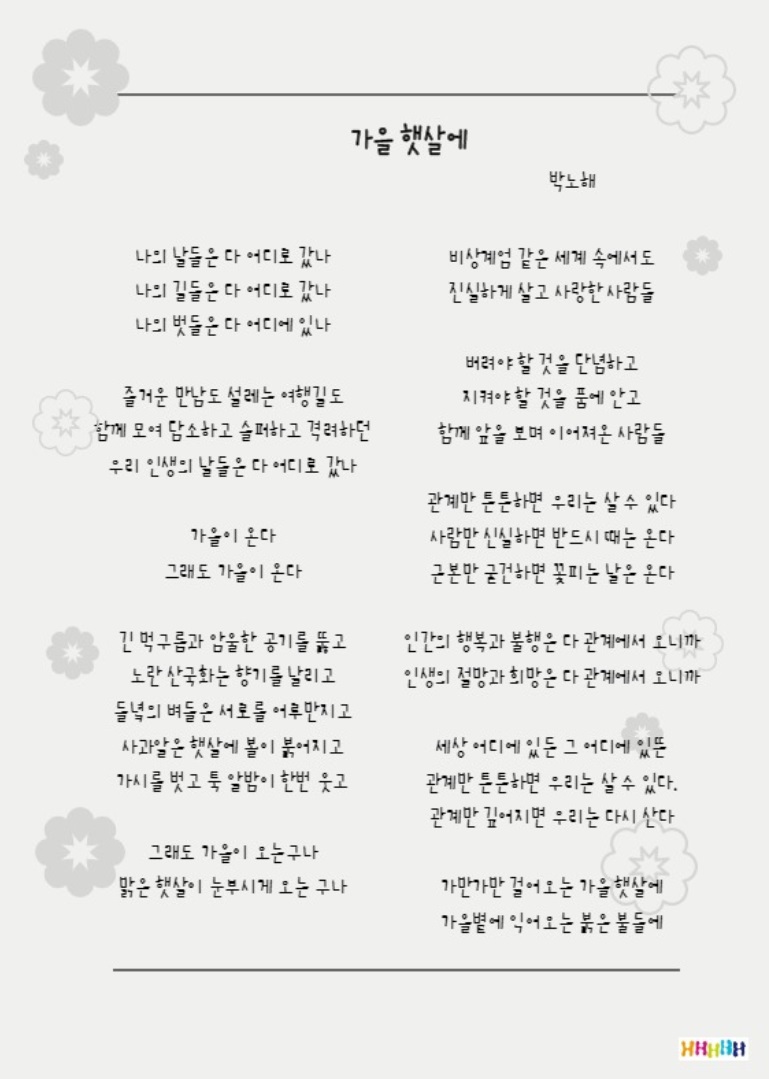 가을 햇살에
박노해
나의 날들은 다 어디로 갔나
나의 길들은 다 어디로 갔나
나의 벗들은 다 어디에 있나
즐거운 만남도 설레는 여행길도
함께 모여 담소하고 슬퍼하고 격려하던
우리 인생의 날들은 다 어디로 갔나
가을이 온다
그래도 가을이 온다
긴 먹구름과 암울한 공기를 뚫고
노란 산국화는 향기를 날리고
들녘의 벼들은 서로를 어루만지고
사과알은 햇살에 볼이 붉어지고
가시를 벗고 툭 알밤이 한번 웃고
그래도 가을이 오는구나
맑은 햇살이 눈부시게 오는 구나
비상계엄 같은 세계 속에서도
진실하게 살고 사랑한 사람들
버려야 할 것을 단념하고
지켜야 할 것을 품에 안고
함께 앞을 보며 이어져온 사람들
관계만 튼튼하면 우리는 살 수 있다
사람만 신실하면 반드시 때는 온다
근본만 굳건하면 꽃피는 날은 온다
인간의 행복과 불행은 다 관계에서 오니까
인생의 절망과 희망은 다 관계에서 오니까
세상 어디에 있든 그 어디에 있뜬
관계만 튼튼하면 우리는 살 수 있다.
관계만 깊어지면 우리는 다시 산다
가만가만 걸어오는 가을 햇살에
가을볕에 익어오는 붉은 불들에